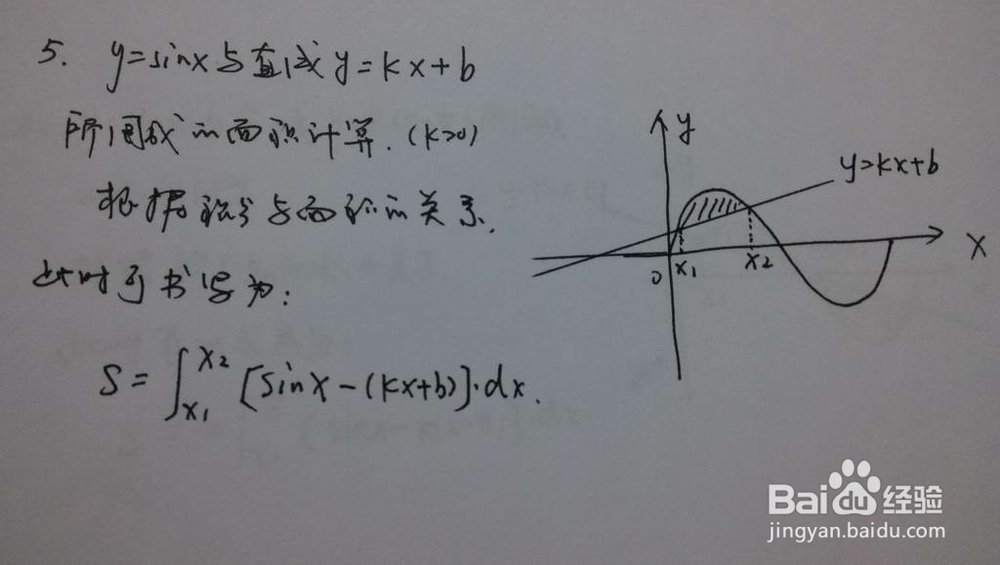 5. y=sinx与直线y=kx+b
所围成的面积计算.(k>0)
根据积分与面积的关系,
此时可书写为:
S=∫_{x1}^{x2}[sinx-(kx+b)]·dx.
y
y=kx+b
x
0
x1
x2
Baidu经验
jingyan.baidu.com